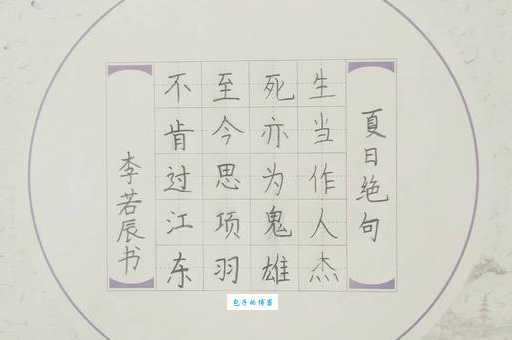 夏日绝句
生当作人杰
死亦为鬼雄
至今思项羽
不肯过江东
李若辰书